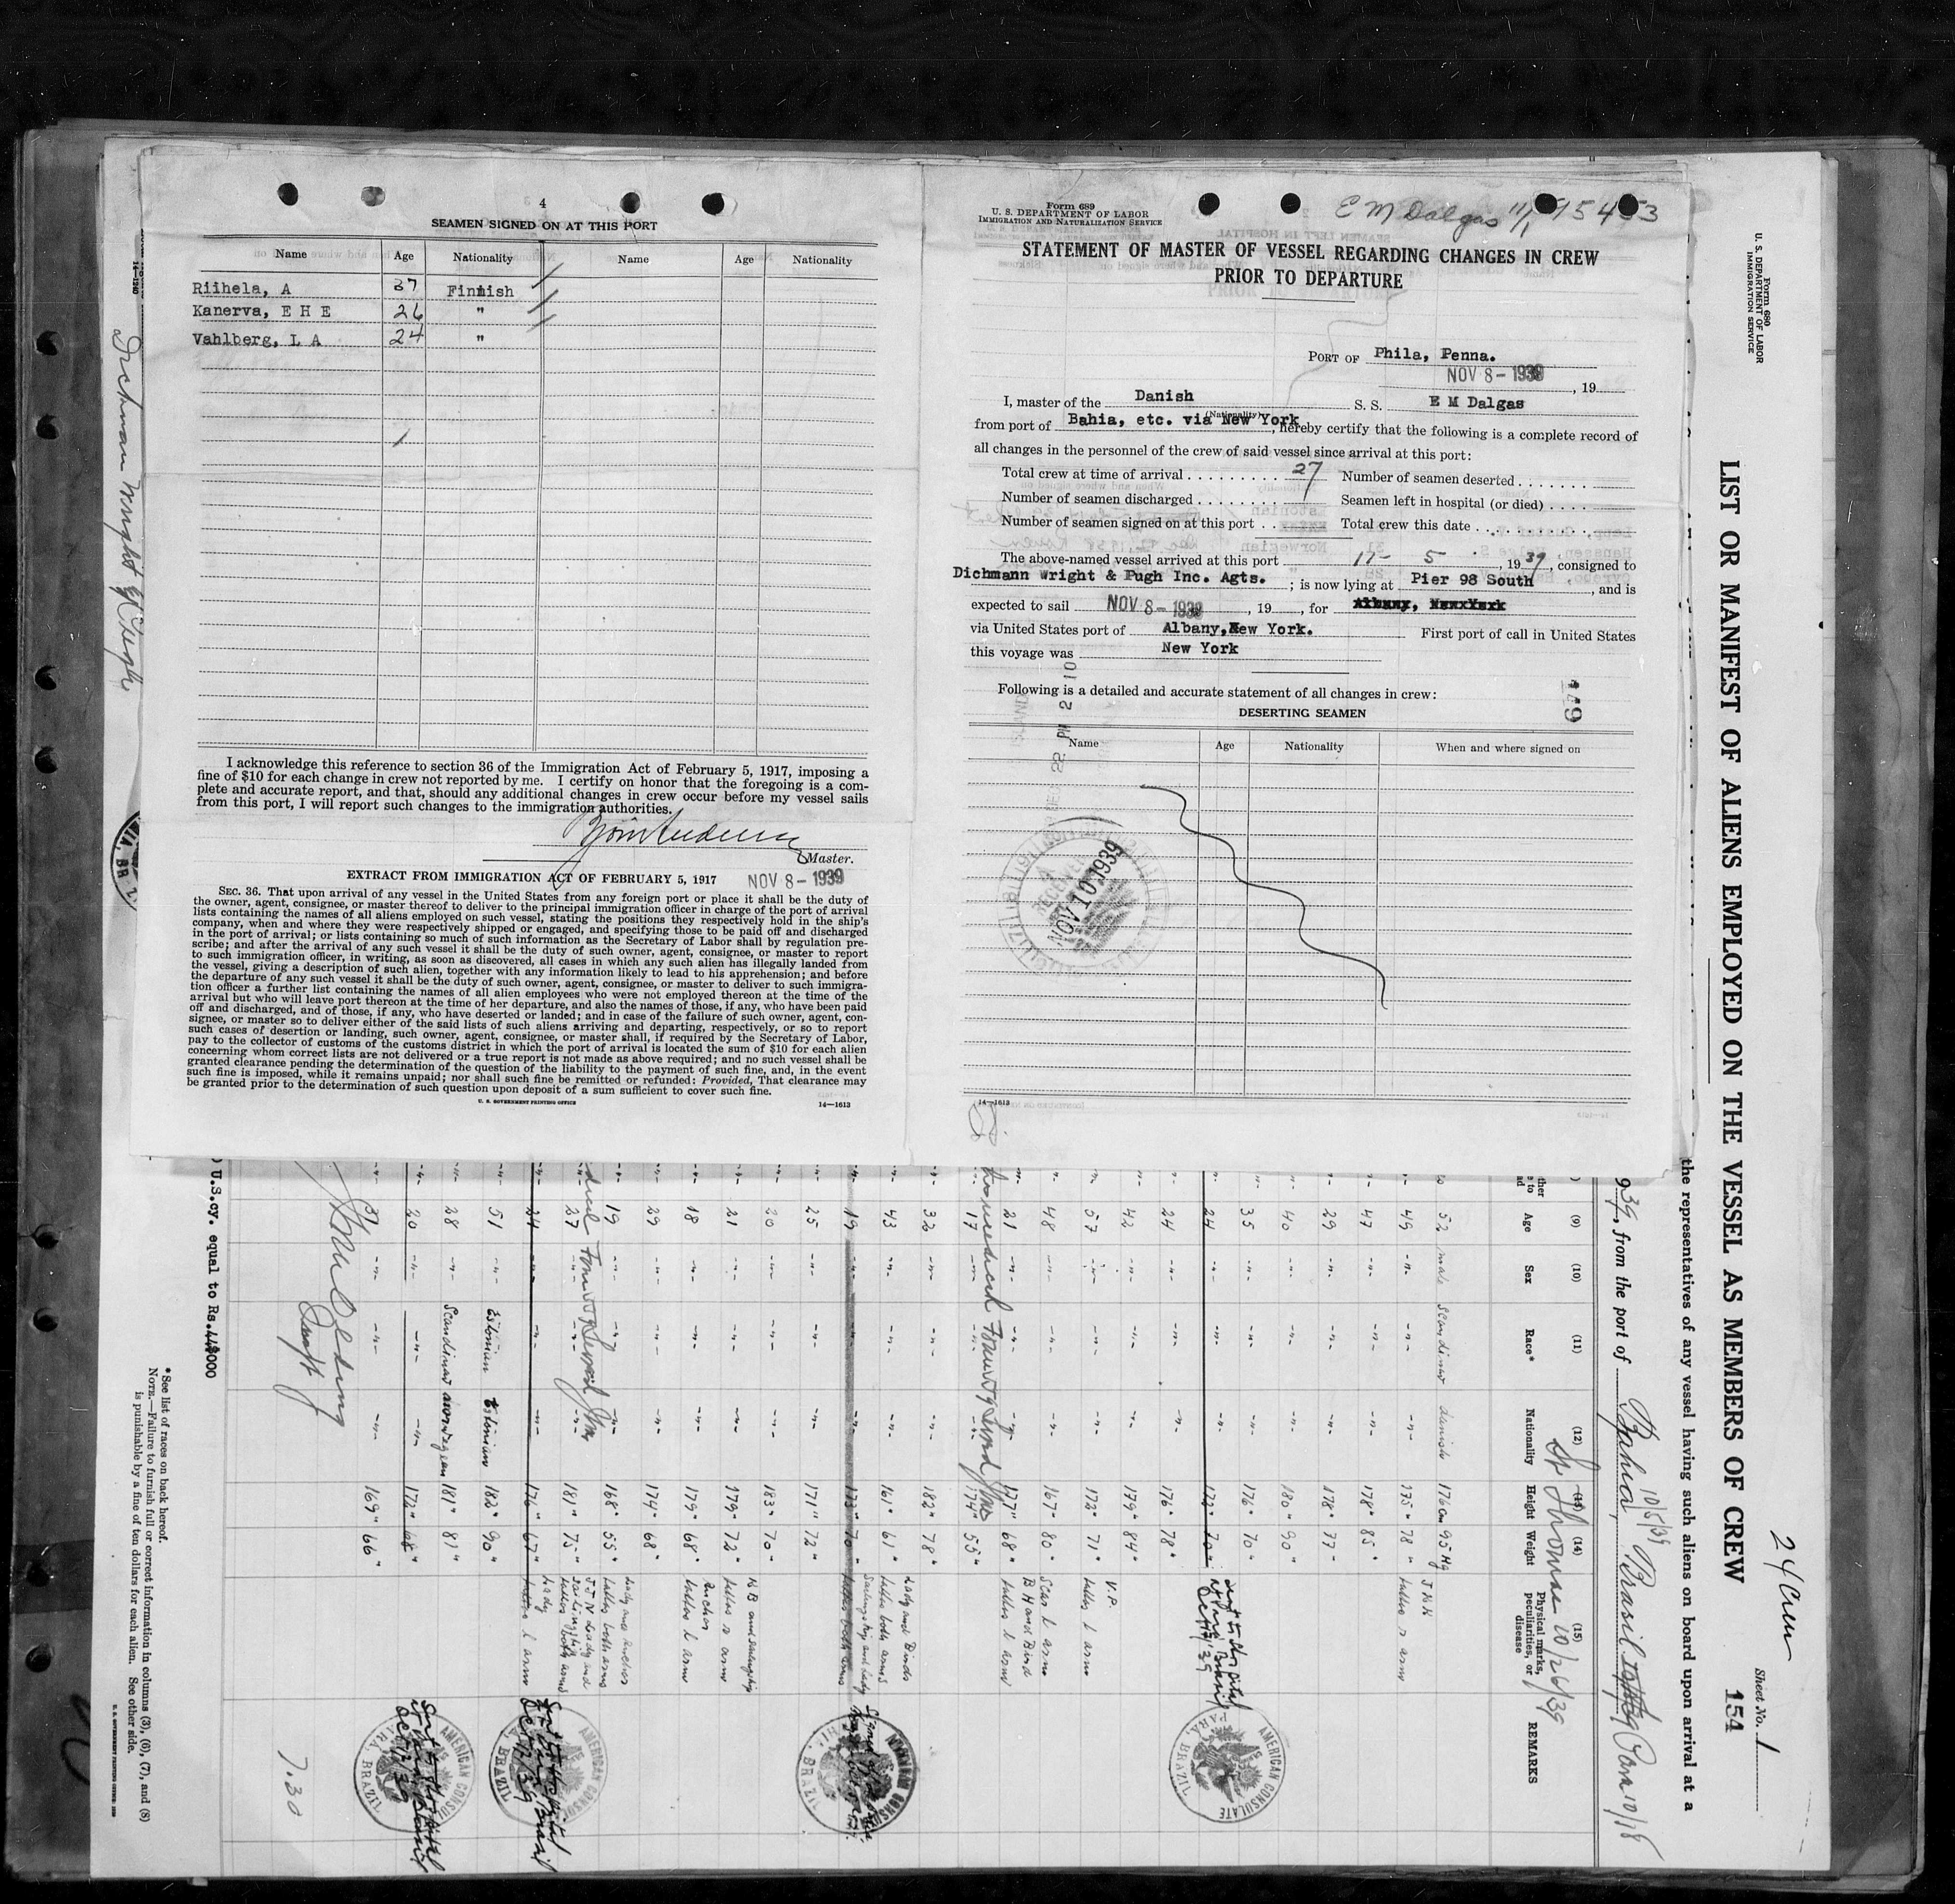 4
SEAMEN SIGNED ON AT THIS PORT
Name Age Nationality Name Age Nationality
Riihela, A 37 Finnish
Kanerva, E H E 26 "
Vahlberg, L A 24 "
I acknowledge this reference to section 36 of the Immigration Act of February 5, 1917, imposing a
fine of $10 for each change in crew not reported by me. I certify on honor that the foregoing is a com-
plete and accurate report, and that, should any additional changes in crew occur before my vessel sails
from this port, I will report such changes to the immigration authorities.
Master.
EXTRACT FROM IMMIGRATION ACT OF FEBRUARY 5, 1917 NOV 8 - 1939
SEC. 36. That upon arrival of any vessel in the United States from any foreign port or place it shall be the duty of
the owner, agent, consignee, or master thereof to deliver to the principal immigration officer in charge of the port of arrival
lists containing the names of all aliens employed on such vessel, stating the positions they respectively hold in the ship's
company, when and where they were respectively shipped or engaged, and specifying those to be paid off and discharged
in the port of arrival; or lists containing so much of such information as the Secretary of Labor shall by regulation pre-
scribe; and after the arrival of any such vessel it shall be the duty of such owner, agent, consignee, or master to report
to such immigration officer, in writing, as soon as discovered, all cases in which any such alien has illegally landed from
the vessel, giving a description of such alien, together with any information likely to lead to his apprehension; and before
the departure of any such vessel it shall be the duty of such owner, agent, consignee, or master to deliver to such immigra-
tion officer a further list containing the names of all alien employees who were not employed thereon at the time of the
arrival but who will leave port thereon at the time of her departure, and also the names of those, if any, who have been paid
off and discharged, and of those, if any, who have deserted or landed; and in case of the failure of such owner, agent, con-
signee, or master so to deliver either of the said lists of such aliens arriving and departing, respectively, or so to report
such cases of desertion or landing, such owner, agent, consignee, or master shall, if required by the Secretary of Labor,
pay to the collector of customs of the customs district in which the port of arrival is located the sum of $10 for each alien
concerning whom correct lists are not delivered or a true report is not made as above required; and no such vessel shall be
granted clearance pending the determination of the question of the liability to the payment of such fine, and, in the event
such fine is imposed, while it remains unpaid; nor shall such fine be remitted or refunded: Provided, That clearance may
be granted prior to the determination of such question upon deposit of a sum sufficient to cover such fine.
U. S. GOVERNMENT PRINTING OFFICE 14—1613
Form 689
U. S. DEPARTMENT OF LABOR
IMMIGRATION AND NATURALIZATION SERVICE
E M Dalgas 11/1
STATEMENT OF MASTER OF VESSEL REGARDING CHANGES IN CREW
PRIOR TO DEPARTURE
PORT OF Phila, Penna.
NOV 8 - 1939, 19
I, master of the Danish S. S. E M Dalgas
(Nationality)
from port of Bahia, etc. via New York, hereby certify that the following is a complete record of
all changes in the personnel of the crew of said vessel since arrival at this port:
Total crew at time of arrival 27 Number of seamen deserted
Number of seamen discharged Seamen left in hospital (or died)
Number of seamen signed on at this port Total crew this date
The above-named vessel arrived at this port 11- 5, 1939, consigned to
Dichmann Wright & Pugh Inc. Agts.; is now lying at Pier 98 South, and is
expected to sail NOV 8 - 1939, 19, for Albany, New York
via United States port of Albany, New York. First port of call in United States
this voyage was New York
Following is a detailed and accurate statement of all changes in crew: 149
DESERTING SEAMEN
Name Age Nationality When and where signed on
NOV 10 1939
14—1613
Form 680
U. S. DEPARTMENT OF LABOR
IMMIGRATION SERVICE
24 Crew
Sheet No. 1
LIST OR MANIFEST OF ALIENS EMPLOYED ON THE VESSEL AS MEMBERS OF CREW 154
the representatives of any vessel having such aliens on board upon arrival at a
939, from the port of Bahia, Brasil Para 10/18
10/5/39
St Thomas 10/26/39
(9) (10) (11) (12) (13) (14) (15)
Age Sex Race* Nationality Height Weight Physical marks, peculiarities, or disease REMARKS
52 male Scandinav danish 176 cm 95 Kg
49 175 " 78 " tattoo r arm
47 178 " 85 "
29 178 " 77 "
40 180 " 90 "
35 176 " 70 "
24 172 " 70 "
24 176 " 78 "
42 179 " 84 "
57 172 " 71 " tattoo l arm V.P.
48 167 " 80 " Scar l arm
21 177 " 68 " tattoo l arm B H and Bird
17 174 " 55 "
32 182 " 78 "
43 161 " 61 " tattoo both arms Lady and Birds
19 173 " 70 "
25 171 " 72 "
20 183 " 70 "
21 179 " 72 " tattoo r arm
18 179 " 68 " tattoo l arm Anchor
29 174 " 68 "
19 168 " 55 " tattoo both arms
27 181 " 75 " tattoo both arms
24 176 " 67 " tattoo l arm lady
51 Estonian Estonian 182 " 90 "
28 Scandinav norwegean 181 " 81 "
20 172 " 68 "
31 169 " 66 "
AMERICAN CONSULATE
PARA, BRAZIL
7.30
U.S.cy. equal to Rs.
* See list of races on back hereof.
NOTE.—Failure to furnish full or correct information in columns (3), (6), (7), and (8)
is punishable by a fine of ten dollars for each alien. See other side.
Dichmann Wright & Pugh